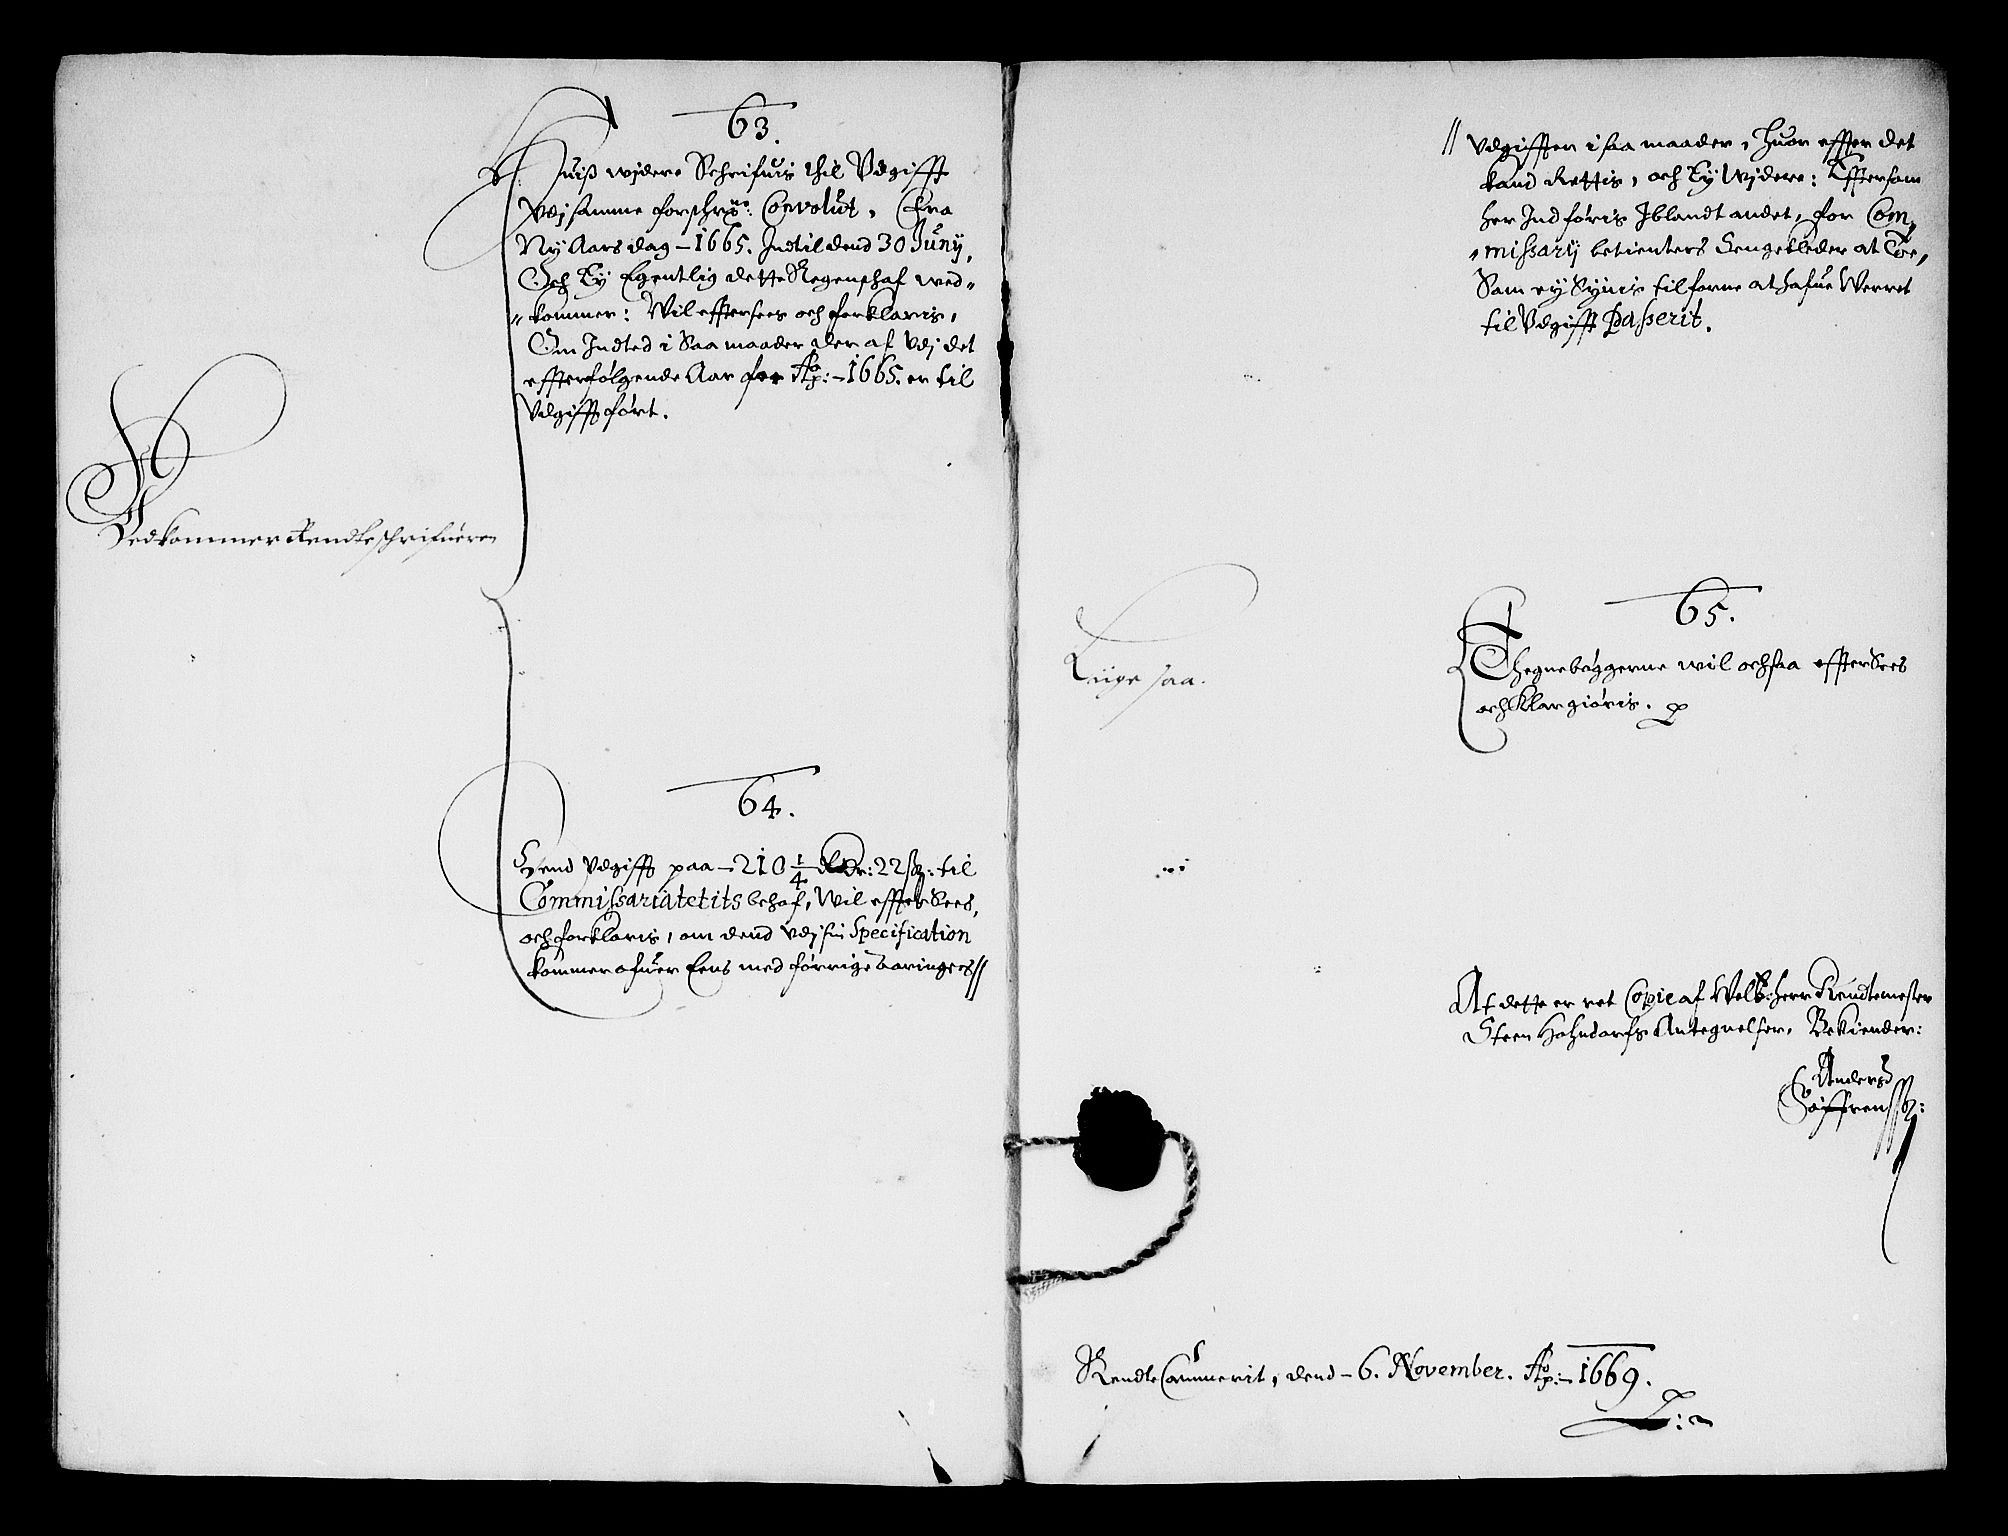 63.
Huiß wjdere Schrifuis thil Udgifft
Udj samme forschrne: Convolut, Fra
Ny Aars dag - 1665. Indtil dend 30 Juny,
Och Ey Egentlig dette Regenschaf wed-
kommer: Wil efftersees och forklaris,
Om Indted i Saa maader der af Udj det
effterfølgende Aar for Ao: - 1665. er til
Udgifft ført.
Vedkommer Rendteschrifueren
64.
Hend Udgifft paa - 210 1/4 Rdr: 22 ß: til
Commissariatetits behof, Wil effter Sees,
och forklaris, om dend Udj sin Specification
kommer ofuer Eens med forrige aaringers //
// Udgiffter i saa maader, Huor effter det
kand Rettis, och Ey Wjdere: Efftersom
her Indføris Iblandt andet, for Com-
missarij betienters Sengekleder at Toe,
Som ey Synis tilforne at hafue Werret
til Udgifft Passerit.
Liige saa.
65.
Thegnebøggerne wil ochsaa effter Sees
och Klar giøris.
At dette er ret Copie af Welb: herr Rendtemester
Steen Hohndorfs Antegnelser, Bekiender:
Anders
Søffrenß:
Rendte Cammerit, dend - 6. November. Ao: - 1669.